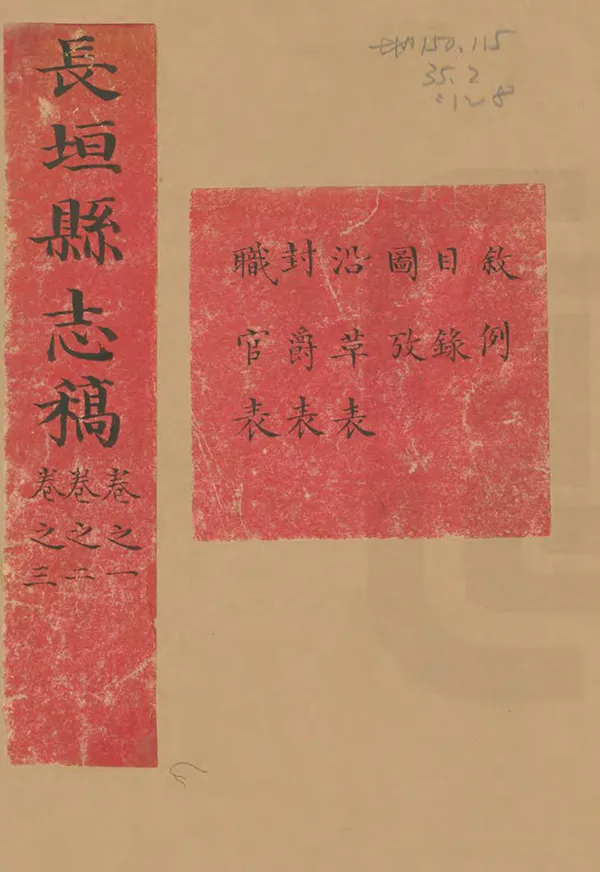 長垣縣志稿
卷之一
卷之二
卷之三
敘例
目錄
圖攷
沿革表
封爵表
職官表
150.115
35.2
:128